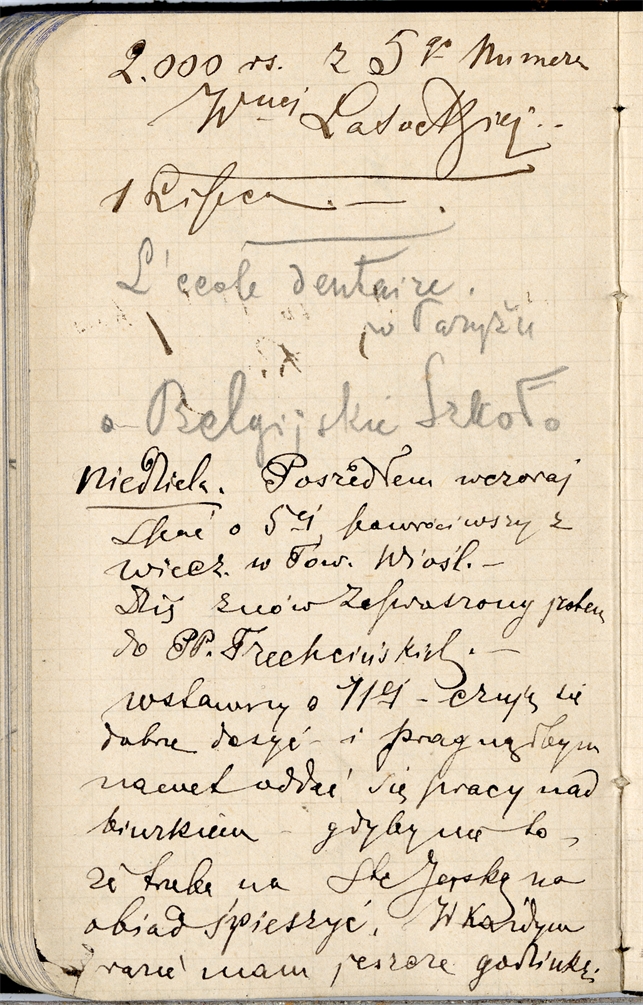 2.000 rs. z 5go Numeru
Wnej Lasockiej..
1 Lipca. —
L'ecole dentaire.
w Paryżu
o Belgijskie Szkoło
Niedziela. Poszedłem wczoraj
spać o 5ej, powróciwszy z
wiecz. w Tow. Wiośl. —
Dziś znów zaproszony jestem
do PP. Trechcińskich. —
wstawszy o 11ej – czuję się
dobrze dosyć – i pragnąłbym
nawet oddać się pracy nad
biurkiem – gdyby nie to –
że trzeba na na
obiad śpieszyć. W każdym
razie mam jeszcze godzinkę